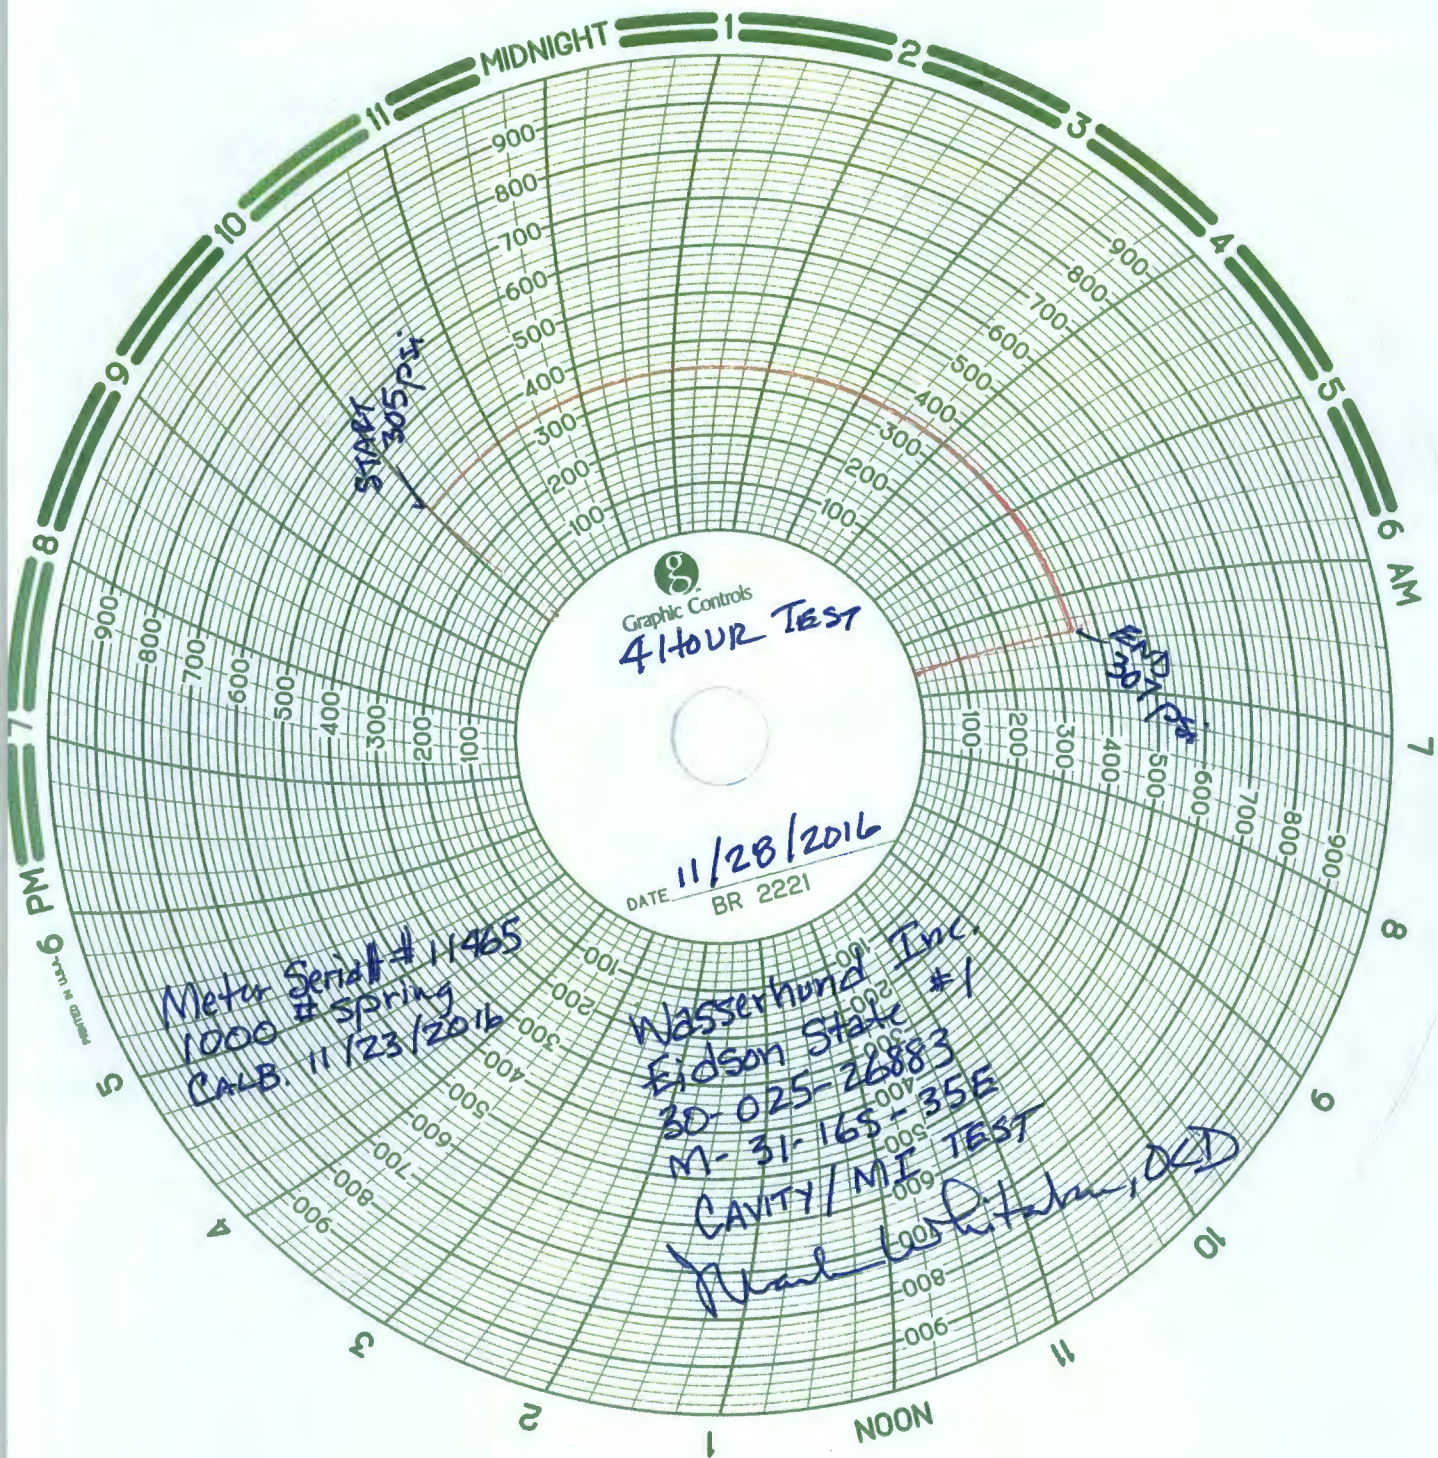 MIDNIGHT
1
2
3
4
5
6
AM
7
8
9
10
11
NOON
1
2
3
4
5
6
PM
7
8
9
10
11
PRINTED IN U.S.A.
900
800
700
600
500
400
300
200
100
900
800
700
600
500
400
300
200
100
100
200
300
400
500
600
700
800
900
100
200
300
400
500
600
700
800
900
100
200
300
400
500
600
700
800
900
900
800
700
600
500
400
300
200
100
START
305 psi.
g
Graphic Controls
4 HOUR TEST
END
307 psi
DATE 11/28/2016
BR 2221
Meter Serial # 11465
1000 # spring
CALB. 11/23/2016
Wasserhund Inc.
Eidson State #1
30-025-26883
M-31-16S-35E
CAVITY/MI TEST
Whitaker, OCD